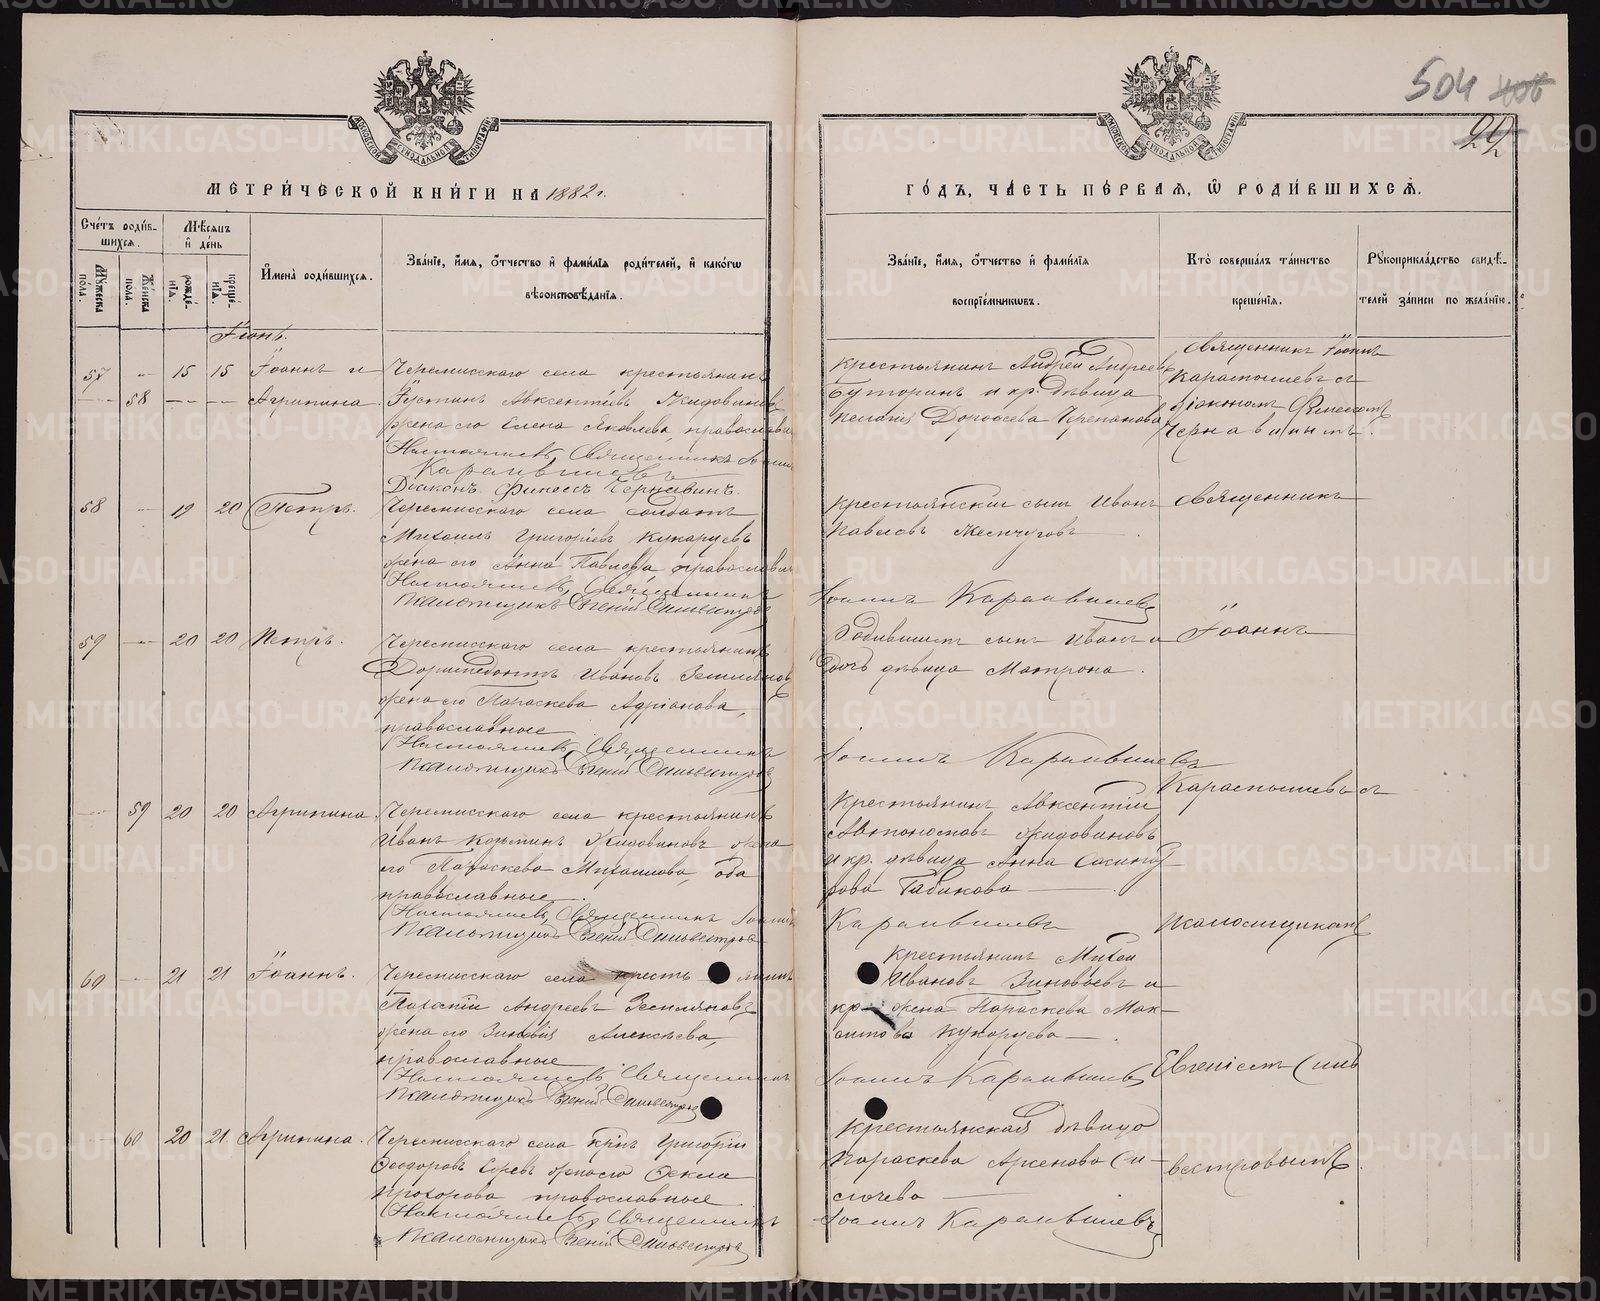 504
22
МЕТРИ́ЧЕСКОЙ КНИ́ГИ НА 1882 г.
ГО́ДЪ, ЧА́СТЬ ПЕ́РВАЯ, Ѿ РОДИ́ВШИХСЯ.
Сче́тъ роди́вшихся.
Мѣ́сяцъ и҆ де́нь
Мꙋ́жеска по́ла.
Же́нска по́ла.
рожде́нїѧ.
креще́нїѧ.
И҆мена̀ роди́вшихсѧ.
Зва́нїе, и҆́мѧ, ѻ҆́тчество и҆ фами́лїѧ роди́телей, и҆ како́гѡ
вѣроисповѣ́данїѧ.
Зва́нїе, и҆́мѧ, ѻ҆́тчество и҆ фами́лїѧ
воспрїе́мникѡвъ.
Кто̀ соверша́лъ та́инство
креще́нїѧ.
Рꙋкоприкла́дство свидѣ́-
телей за́писи по жела́нїю.
Іюнь.
57 - 15 15 Іоаннъ и
- 58 - - Агрипина.
Черемисскаго села крестьянинъ
Іустинъ Авксентіевъ Жидовиновъ
жена его Елена Яковлева, православн
Настоятель, Священникъ Іоаннъ
Карапышевъ
Діаконъ Финеесъ Чернавинъ.
Крестьянинъ Андрей Андреевъ
Буторинъ и кр. дѣвица
Пелагія Дороѳеева Черепанова
Священникъ Іоаннъ
Карапышевъ съ
діакономъ Финеесомъ
Чернавинымъ.
58 - 19 20 Петръ.
Черемисскаго села солдатъ
Михаилъ Григорьевъ Кукарцевъ
жена его Анна Павлова православн
Настоятель, Священникъ
Псаломщикъ Евгеній Сильвестровъ
Крестьянскій сынъ Иванъ
Павловъ Жемчуговъ
Іоаннъ Карапышевъ
Священникъ
59 - 20 20 Петръ.
Черемисскаго села крестьянинъ
Доримедонтъ Ивановъ Земляновъ
жена его Параскева Адріанова,
православные
Настоятель, Священникъ
Псаломщикъ Евгеній Сильвестровъ
Родившихъ сынъ Иванъ и
дочь дѣвица Матрона.
Іоаннъ Карапышевъ
Іоаннъ
- 59 20 20 Агрипина.
Черемисскаго села крестьянинъ
Иванъ Козьминъ Жидовиновъ жена
его Параскева Михаилова, оба
православные.
Настоятель, Священникъ Іоаннъ
Псаломщикъ Евгеній Сильвестровъ
Крестьянинъ Авксентій
Автономовъ Жидовиновъ
и кр. дѣвица Анна
Табакова
Карапышевъ
Карапышевъ съ
псаломщикомъ
60 - 21 21 Іоаннъ.
Черемисскаго села крестьянинъ
Андреевъ Земляновъ,
жена его Зиновія Алексѣева,
православные
Настоятель, Священникъ
Псаломщикъ Евгеній Сильвестровъ
Крестьянинъ Михей
Ивановъ Зиновьевъ и
кр. жена Параскева Мак-
симова Кукарцева
Іоаннъ Карапышевъ
Евгеніемъ Силь
- 60 20 21 Агрипина.
Черемисскаго села кр-нъ Григорій
Ѳеодоровъ жена его Ѳекла
Прохорова православные
Настоятель, Священникъ
Псаломщикъ Евгеній Сильвестровъ
Крестьянская дѣвица
Параскева Арсенова
Іоаннъ Карапышевъ
вестровымъ.
METRIKI.GASO-URAL.RU